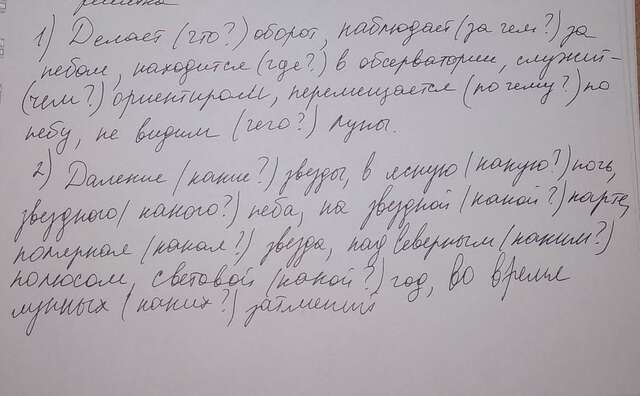 решётка
1) Делает (что?) оборот, наблюдает (за чем?) за
небом, находится (где?) в обсерватории, служит
(чем?) ориентиром, перемещается (по чему?) по
небу, не видим (чего?) Луны.
2) Далекие (какие?) звезды, в ясную (какую?) ночь,
звездного (какого?) неба, на звездной (какой?) карте,
полярная (какая?) звезда, над Северным (каким?)
полюсом, световой (какой?) год, во время
лунных (каких?) затмений